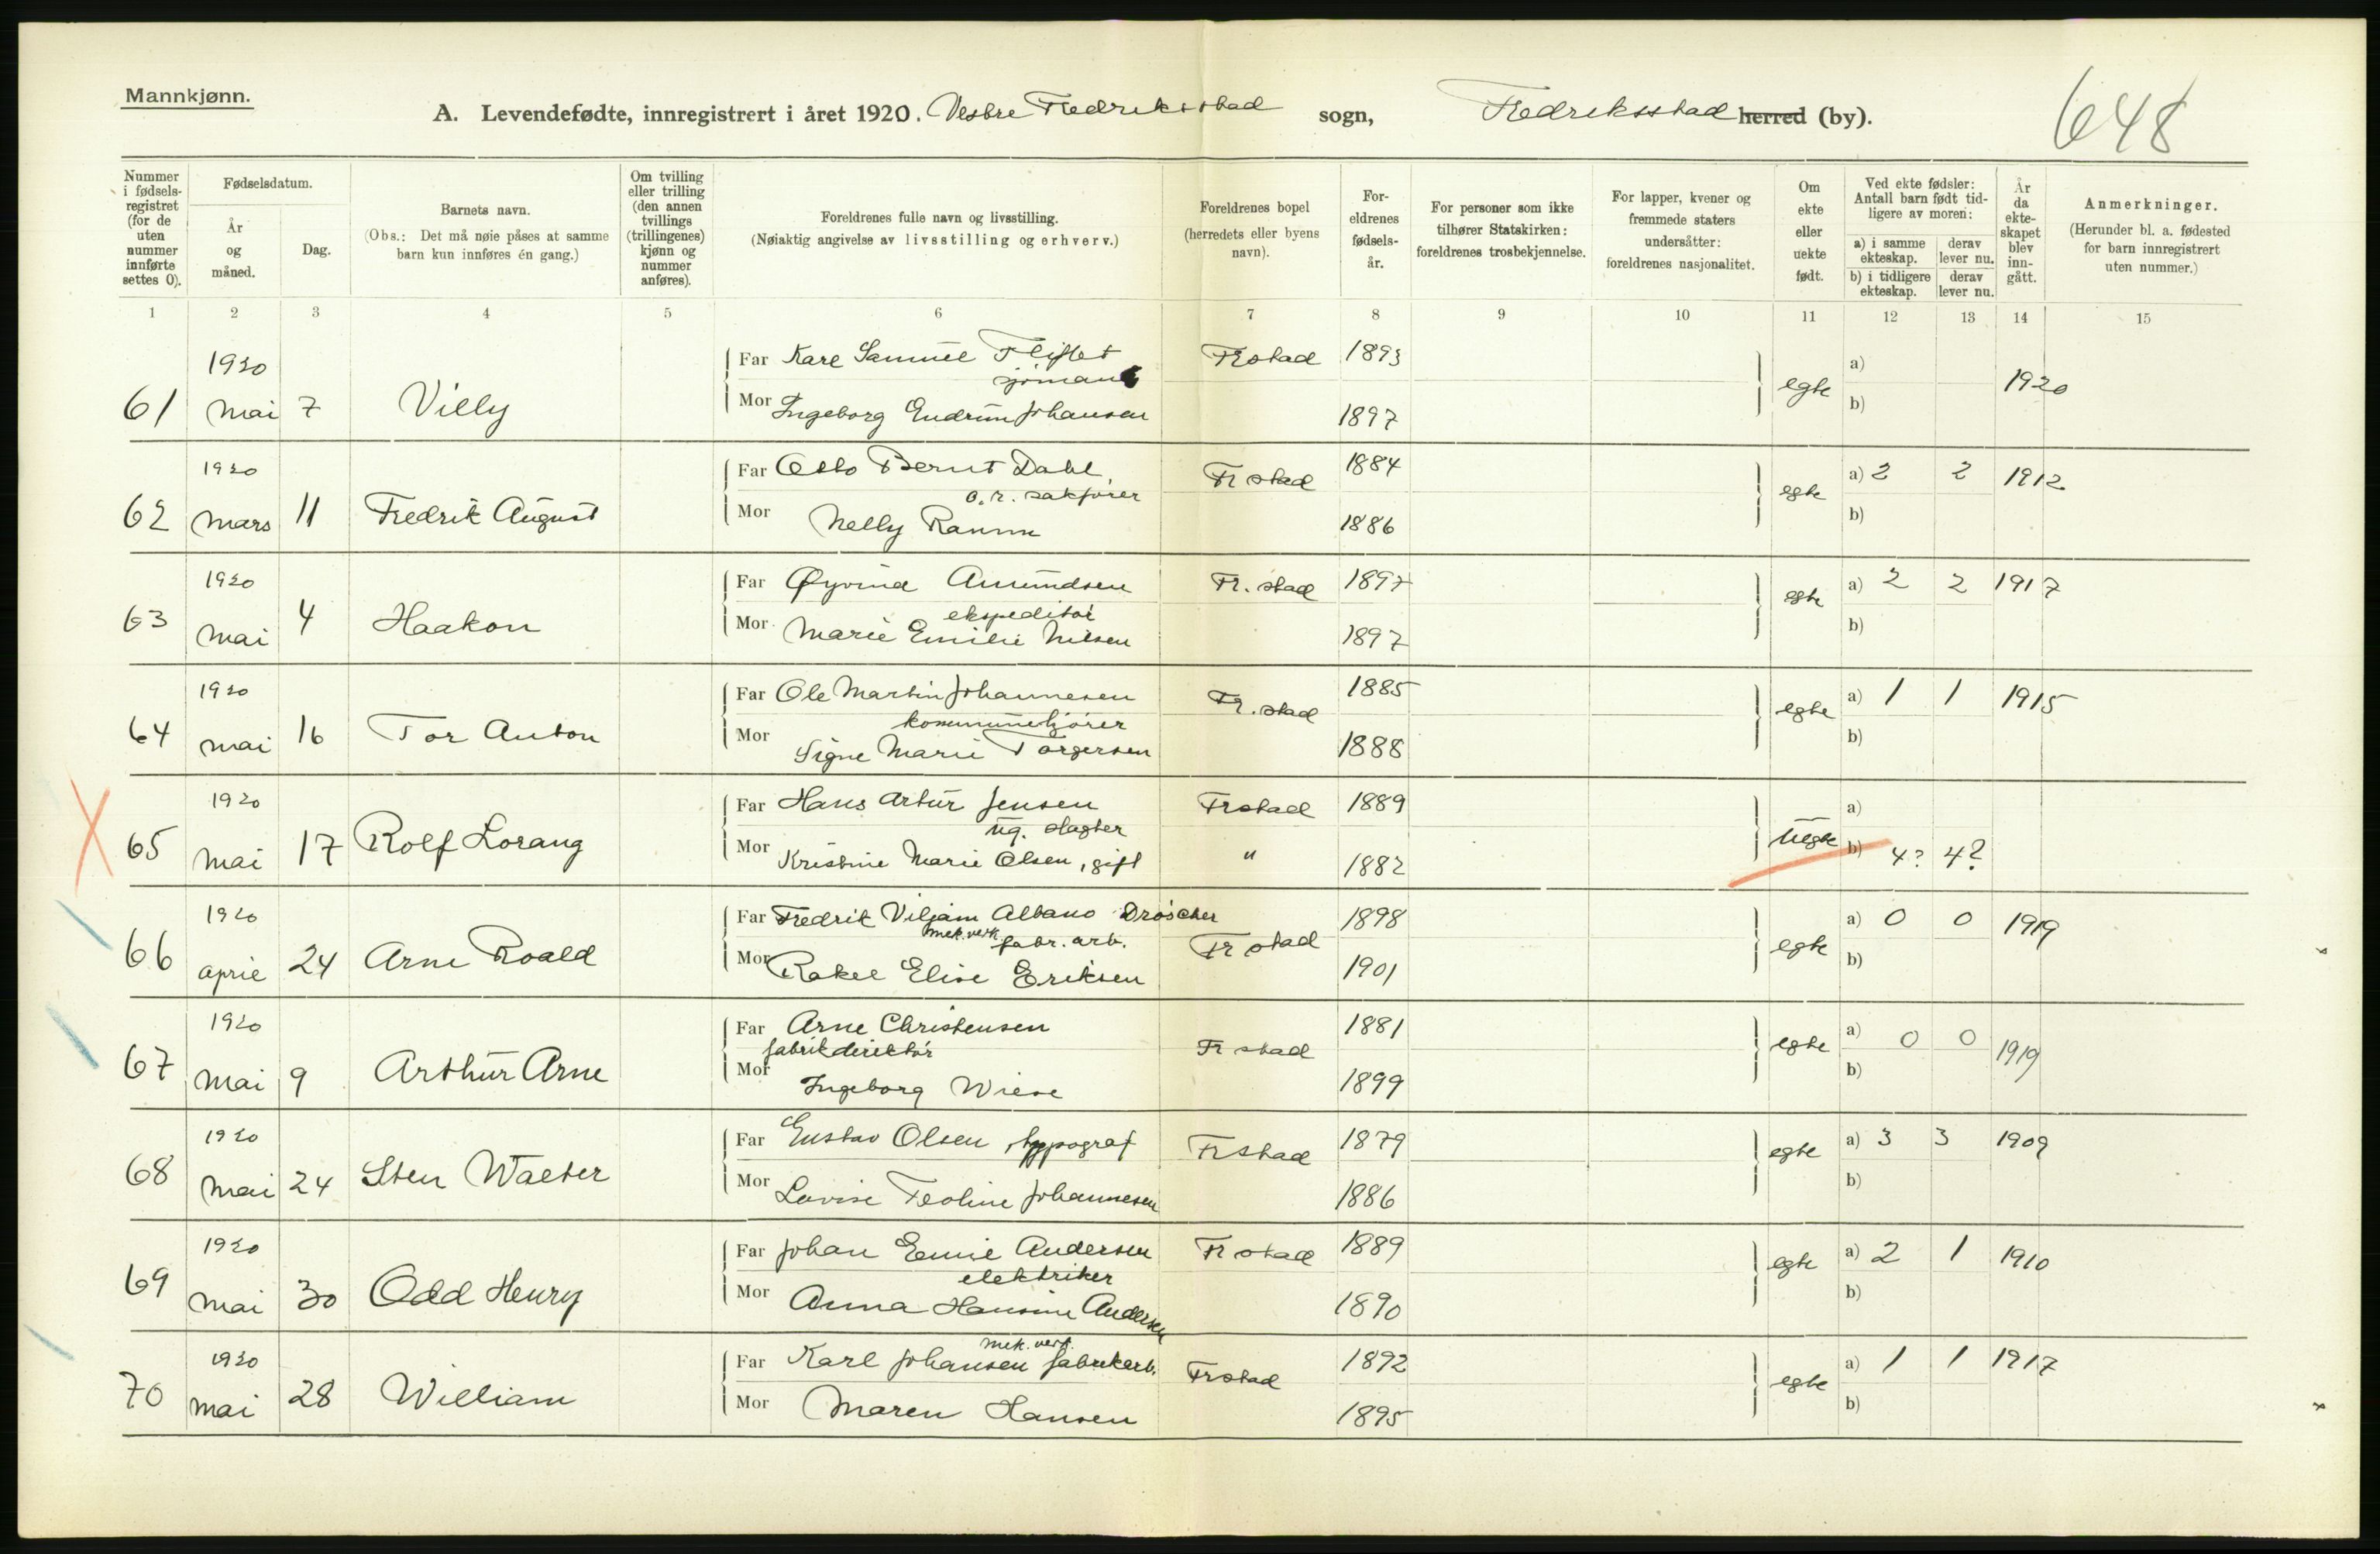 Mannkjønn.
A. Levendefødte, innregistrert i året 1920. Vestre Fredriksstad sogn, Fredriksstad herred (by).
648
Nummer i fødsels-registret (for de uten nummer innførte settes 0).
Fødselsdatum.
År og måned.
Dag.
Barnets navn.
(Obs.: Det må nøie påses at samme barn kun innføres én gang.)
Om tvilling eller trilling (den annen tvillings (trillingenes) kjønn og nummer anføres).
Foreldrenes fulle navn og livsstilling.
(Nøiaktig angivelse av livsstilling og erhverv.)
Foreldrenes bopel (herredets eller byens navn).
For-eldrenes fødsels-år.
For personer som ikke tilhører Statskirken: foreldrenes trosbekjennelse.
For lapper, kvener og fremmede staters undersåtter: foreldrenes nasjonalitet.
Om ekte eller uekte født.
Ved ekte fødsler: Antall barn født tid-ligere av moren:
a) i samme ekteskap.
derav lever nu.
b) i tidligere ekteskap.
derav lever nu.
År da ekte-skapet blev inn-gått.
Anmerkninger.
(Herunder bl. a. fødested for barn innregistrert uten nummer.)
1 2 3 4 5 6 7 8 9 10 11 12 13 14 15
1920 Far Karl Samuel Fliflet Frstad 1893 a)
sjømann egte 1920
61 Mai 7 Villy Mor Ingeborg Gudrun Johansen 1897 b)
1920 Far Otto Bernt Dahl Frstad 1884 a) 2 2 1912
o.r. sakfører egte
62 Mars 11 Fredrik August Mor Nelly Ramm 1886 b)
1920 Far Øyvind Amundsen Fr. stad 1897 a) 2 2 1917
ekspeditør egte
63 Mai 4 Haakon Mor Marie Emilie Nilsen 1897 b)
1920 Far Ole Martin Johannesen Fr. stad 1885 a) 1 1 1915
kommunekjører egte
64 Mai 16 Tor Anton Mor Signe Marie Torgersen 1888 b)
1920 Far Hans Artur Jensen Frstad 1889 a)
ug. slagter uegte
65 Mai 17 Rolf Lorang Mor Kristine Marie Olsen, gift " 1882 b) 4? 4?
1920 Far Fredrik Viljam Albano Dröscher Frstad 1898 a) 0 0 1919
mek. verk. fabr. arb. egte
66 April 24 Arne Roald Mor Rakel Elise Eriksen 1901 b)
1920 Far Arne Christensen Frstad 1881 a) 0 0 1919
fabrikdirektør egte
67 Mai 9 Arthur Arne Mor Ingeborg Wiese 1899 b)
1920 Far Gustav Olsen, typograf Frstad 1879 a) 3 3 1909
egte
68 Mai 24 Sten Walter Mor Lovise Teoline Johannesen 1886 b)
1920 Far Johan Emil Andersen Frstad 1889 a) 2 1 1910
elektriker egte
69 Mai 30 Odd Henry Mor Anna Hansine Andersen 1890 b)
mek. verk.
1920 Far Karl Johansen fabrikarb. Frstad 1892 a) 1 1 1917
egte
70 Mai 28 William Mor Maren Hansen 1895 b)